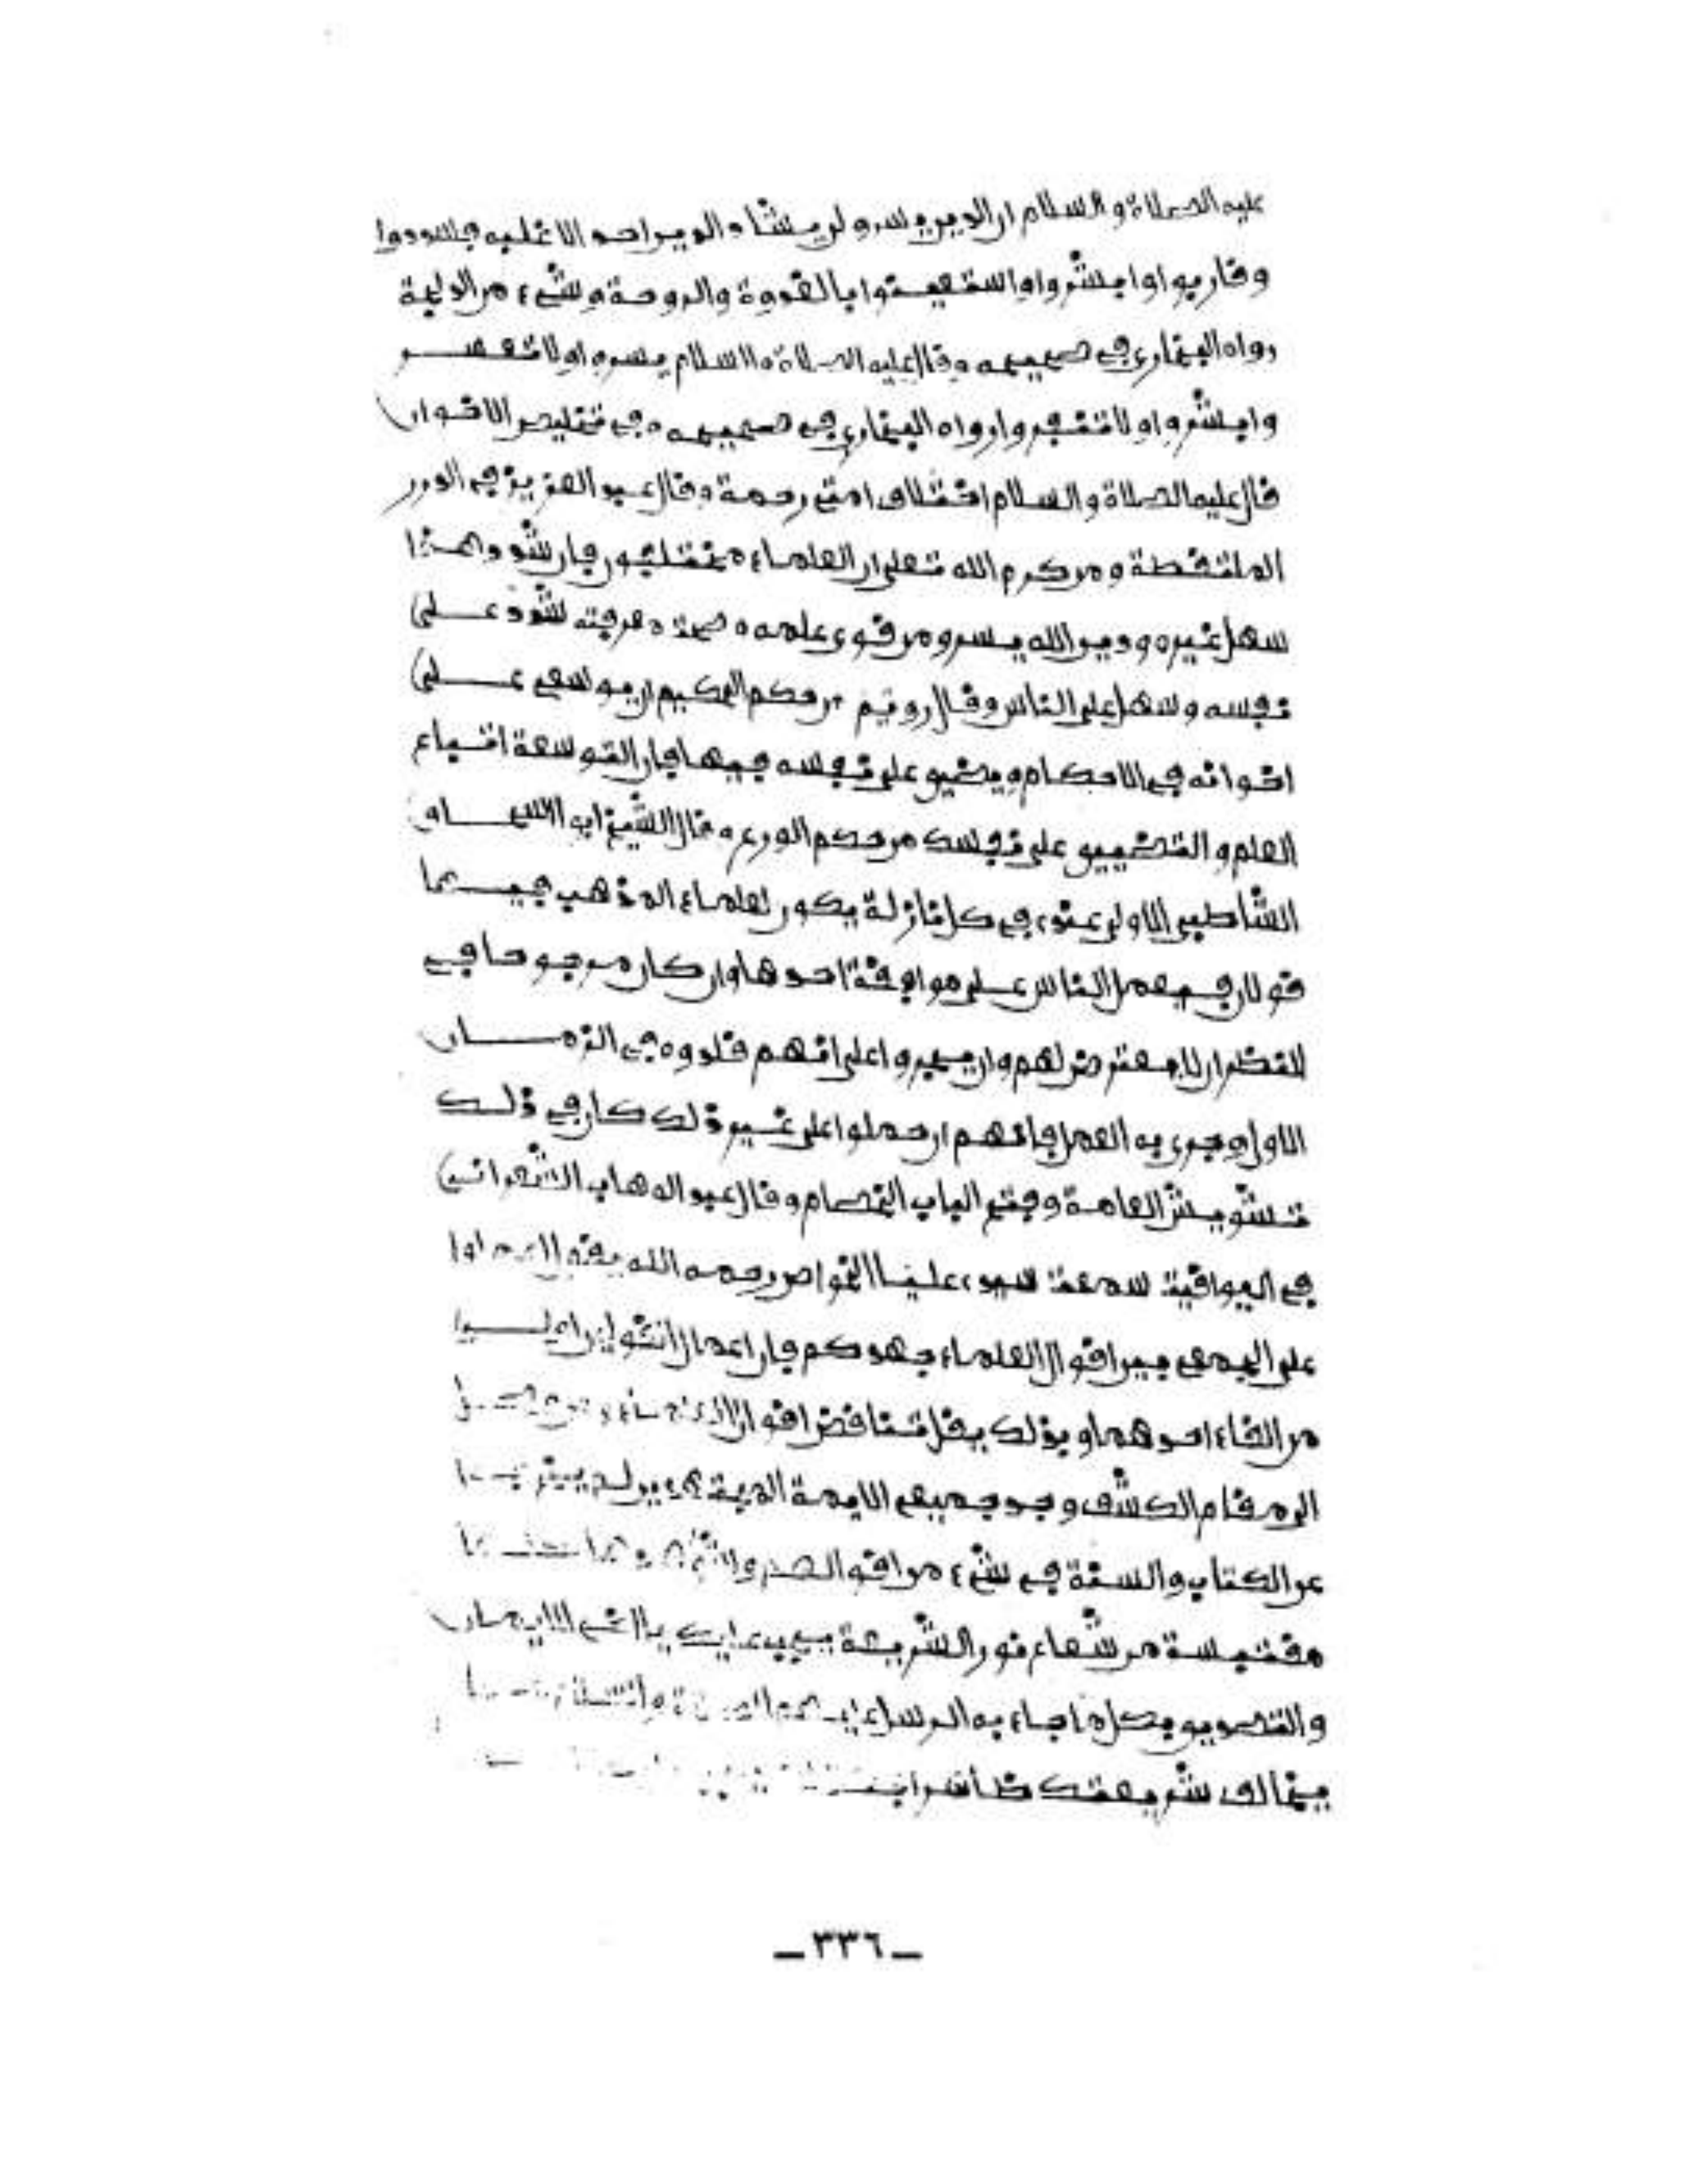 عليه الصلاة والسلام ان الدين يسر ولن يشاد الدين احد الا غلبه فسددوا
وقاربوا وابشروا واستعينوا بالغدوة والروحة وشيء من الدلجة
رواه البخاري في صحيحه وقال عليه الصلاة والسلام يسروا ولا تعسر
وابشروا ولا تنفروا رواه البخاري في صحيحه وفي تخليص الاخوان
قال عليه الصلاة والسلام اختلاف امتي رحمة وقال عبد العزيز في الدرر
الملتقطة ومن كرم الله تعلى ان العلماء مختلفون فان شدد هذا
سهل غيره ودين الله يسر ومن قوي علمه وصحة معرفته شدد على
نفسه وسهل على الناس وقال رويم من حكم الحكيم ان يوسع على
اخوانه في الاحكام ويضيق على نفسه فيها فان التوسعة اتباع
العلم والتضييق على نفسك من حكم الورع وقال الشيخ ابو اسحاق
الشاطبي الاولى عندي في كل نازلة يكون لعلماء المذهب فيها
قولان فيعمل الناس على موافقة احدها وان كان مرجوحا في
النظر ان لا يعترض لهم وان يجروا على انهم قلدوه في الزمان
الاول وجرى به العمل فانهم ان حملوا على غير ذلك كان في ذلك
تشويش العامة وفتح الباب الخصام وقال عبد الوهاب الشعراني
في اليواقيت سمعت سيدي عليا الخواص رحمه الله يقول اعملوا
على الجمع بين اقوال العلماء جهدكم فان اعمال القولين اولى
من الغاء احدهما وبذلك يقل تناقض اقوال ومن وصل
الى مقام الكشف وجد جميع الايمة المجتهدين لم يخرجوا
عن الكتاب والسنة في شيء من اقوالهم
مقتبسة من شعاع نور الشريعة فيجب عليك يا اخي الايمان
والتصديق بكل ما جاء به الرسل عليهم الصلاة والسلام
يخالف شريعتك ظاهرا
ــ ٣٣٦ ــ